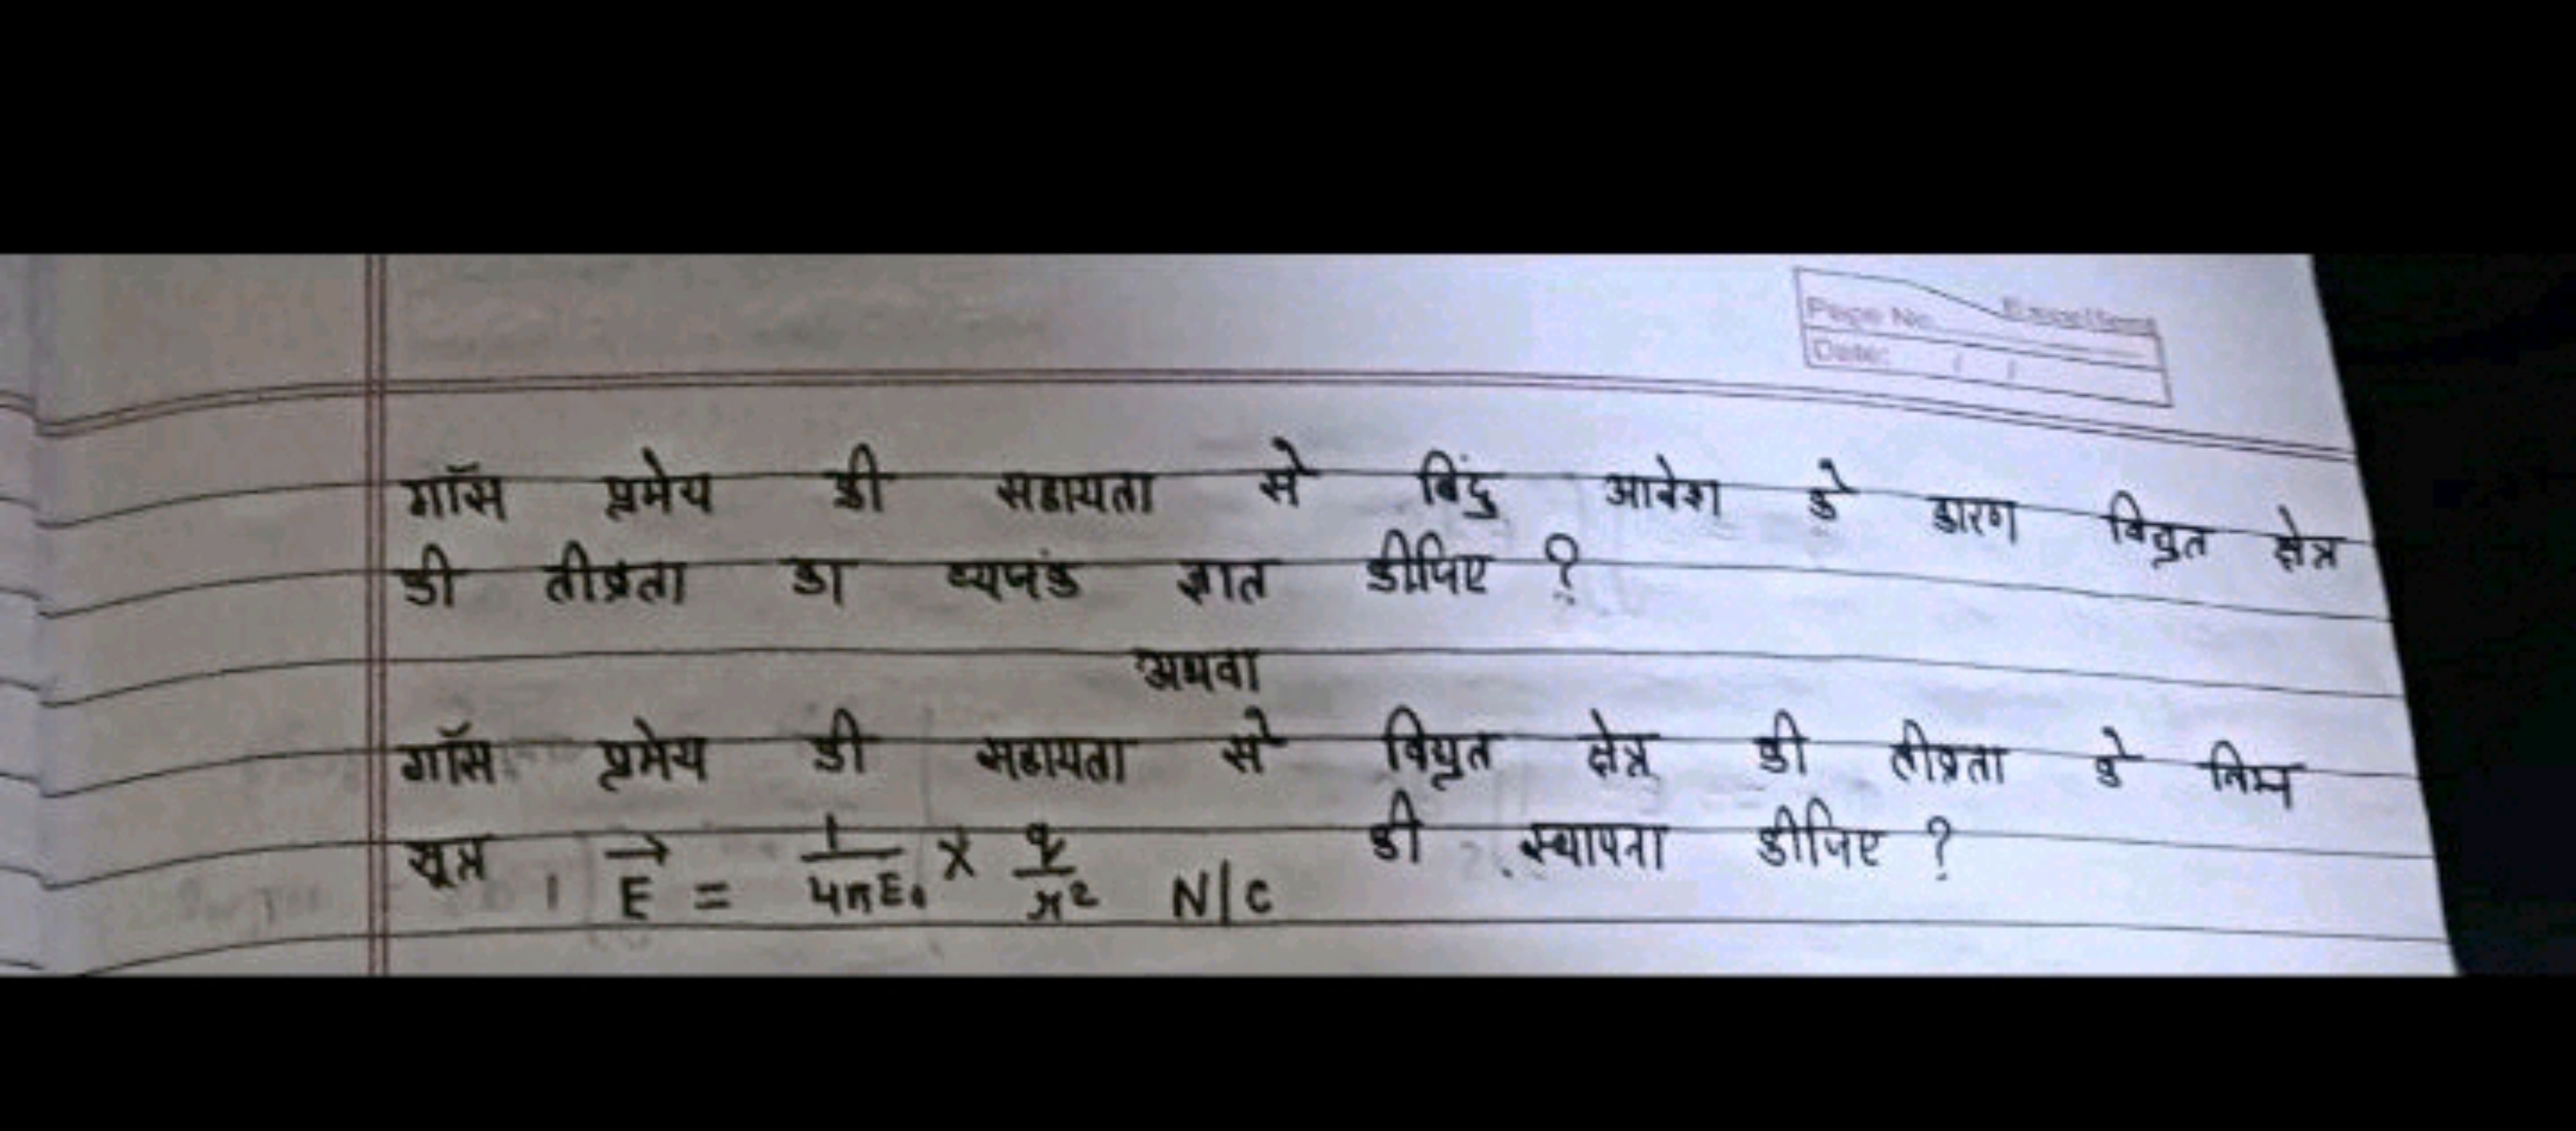 Page No. Excellent
Date: / /
गॉस प्रमेय की सहायता से बिंदु आवेश के कारण विद्युत क्षेत्र
की तीव्रता का व्यजंक ज्ञात कीजिए ?
अथवा
गॉस प्रमेय की सहायता से विद्युत क्षेत्र की तीव्रता के निम्न
सूत्र , E⃗ = 1/4πε₀ × q/r² N/C की स्थापना कीजिए ?